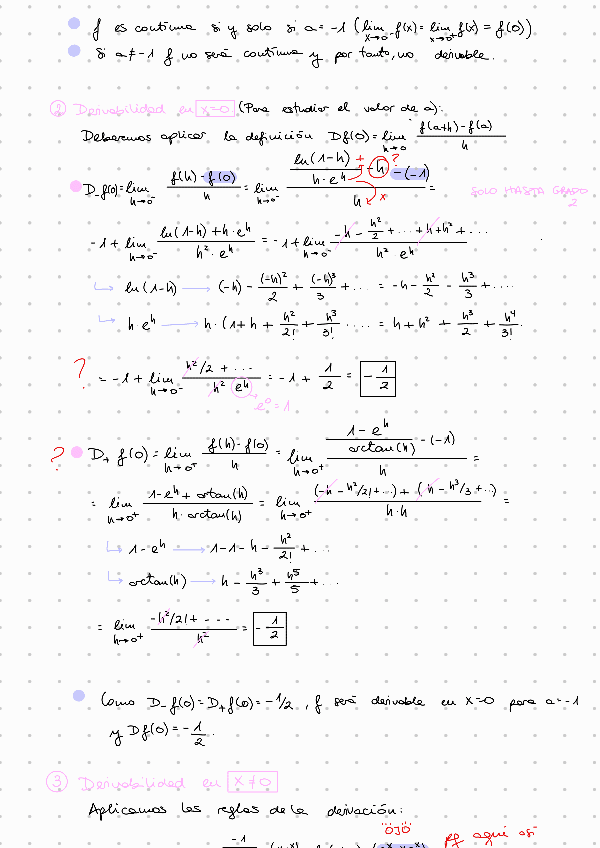 f es continua si y solo si a = -1 (lim x→0⁻ f(x) = lim x→0⁺ f(x) = f(0))
Si a ≠ -1 f no será continua y por tanto, no derivable.
② Derivabilidad en x=0 (Para estudiar el valor de a):
Deberemos aplicar la definición Df(0) = lim h→0 (f(a+h) - f(a))/h
D₋f(0) = lim h→0⁻ (f(h) - f(0))/h = lim h→0⁻ (ln(1-h)/(h·eʰ) + - h ? - (-1))/h x =
SOLO HASTA GRADO 2
-1 + lim h→0⁻ (ln(1-h) + h·eʰ)/(h²·eʰ) = -1 + lim h→0⁻ (-h - h²/2 + ... + h + h² + ...)/(h² eʰ)
↳ ln(1-h) → (-h) - (-h)²/2 + (-h)³/3 + ... = -h - h²/2 - h³/3 + ....
↳ h·eʰ → h·(1 + h + h²/2! + h³/3! .... = h + h² + h³/2 + h⁴/3!
? = -1 + lim h→0⁻ (h²/2 + ...)/(h² eʰ) = -1 + 1/2 = -1/2
e⁰ = 1
? D₊ f(0) = lim h→0⁺ (f(h) - f(0))/h = lim h→0⁺ ((1 - eʰ)/arctan(h) - (-1))/h =
= lim h→0⁺ (1 - eʰ + arctan(h))/(h·arctan(h)) = lim h→0⁺ ((-h - h²/2! + ...) + (h - h³/3 + ...))/(h·h) =
↳ 1 - eʰ → 1 - 1 - h - h²/2! + ...
↳ arctan(h) → h - h³/3 + h⁵/5 + ...
= lim h→0⁺ (-h²/2! + ...)/h² = -1/2
Como D₋f(0) = D₊f(0) = -1/2, f será derivable en x=0 para a=-1
y Df(0) = -1/2.
③ Derivabilidad en x≠0
Aplicamos las reglas de la derivación:
"OJO"
aquí